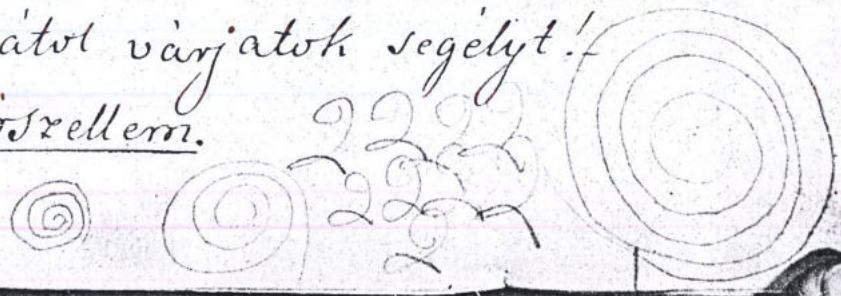 átol várjatok segélyt!
szellem.